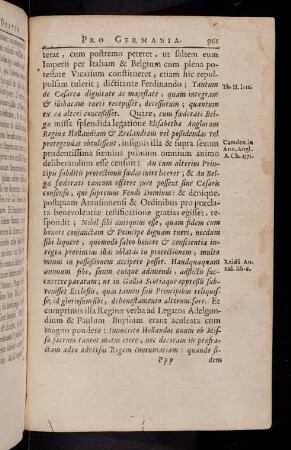 PRO GERMANIA. 961
terat, cum postremo peteret, ut saltem eum
Imperii per Italiam & Belgium cum plena po-
testate Vicarium constitueret, etiam hic repul-
pulsam tulerit; dictitante Ferdinando; Tantum
de Cæsarea dignitate ac majestate, quam integram
& illibatam tueri recepisset, decessurum; quantum
ex ea alteri concessisset. Quare, cum fœderati Bel-
gæ missa splendida legatione Elisabetha Anglorum
Reginæ Hollandiam & Zeelandiam vel possidendas vel
protegendas obtulissent, insignis illa & supra sexum
prudentissima fœmina primum omnium animo
deliberandum esse censuit: An cum alterius Prin-
cipis subditis protectionis fœdus inire liceret; & An Bel-
gæ fœderati tantum offerre jure possent sine Cæsaris
consensu, qui supremus Feudi Dominus: & denique,
postquam Arausionensi & Ordinibus pro præcla-
ra benevolentiæ testificatione gratias egisset, re-
spondit; Nihil sibi antiquius esse, quam fidem cum
honore conjunctam & Principe dignam tueri, necdum
sibi liquere, quomodo salvo honore & conscientia in
tegra provincias illas oblatas in protectionem, multo
minus in possessionem accipere posset. Haudquaquam
animum sibi, suum cuique adimendi, adflictis suc-
currere paratam; ut in Gallia Scotiaque oppressis subve-
nisset Ecclesiis, quas tamen suis Principibus reliquis-
se, id gloriosum sibi, dehonestamento alterum fore. Et
cumprimis illa Reginæ verba ad Legatos Adelgon-
dium & Paulum Buysium erant aculeata cum
magno pondere: Immerito Hollandos unam ob Mis-
sa sacrum tantos motus ciere, nec decoram in præfra-
ctam adeo adversus Regem contumaciam: quando si-
Ppp dem
Th. II. l. 16.
Camden. in
Ann. Angl.
A. Ch. 1571.
Reidt An-
nal. lib. 1.